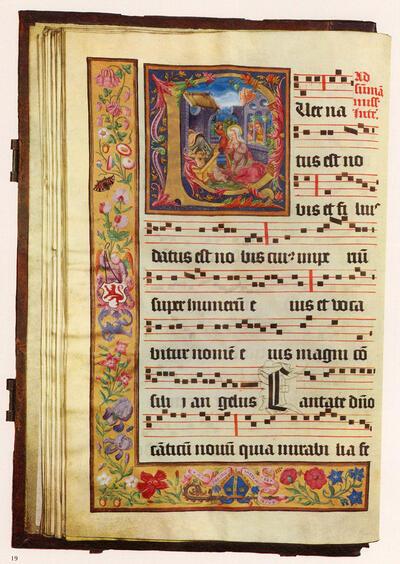 Ad
sūmā
miss
Intr.
PUer na
tus est no
bis et fi lius
datus est no bis cuiꝰ impe riū
super humerū e ius et voca
bitur nomē e ius magni cō
sili i angelus Cantate dño
cāticū novū quia mirabi lia fe
19